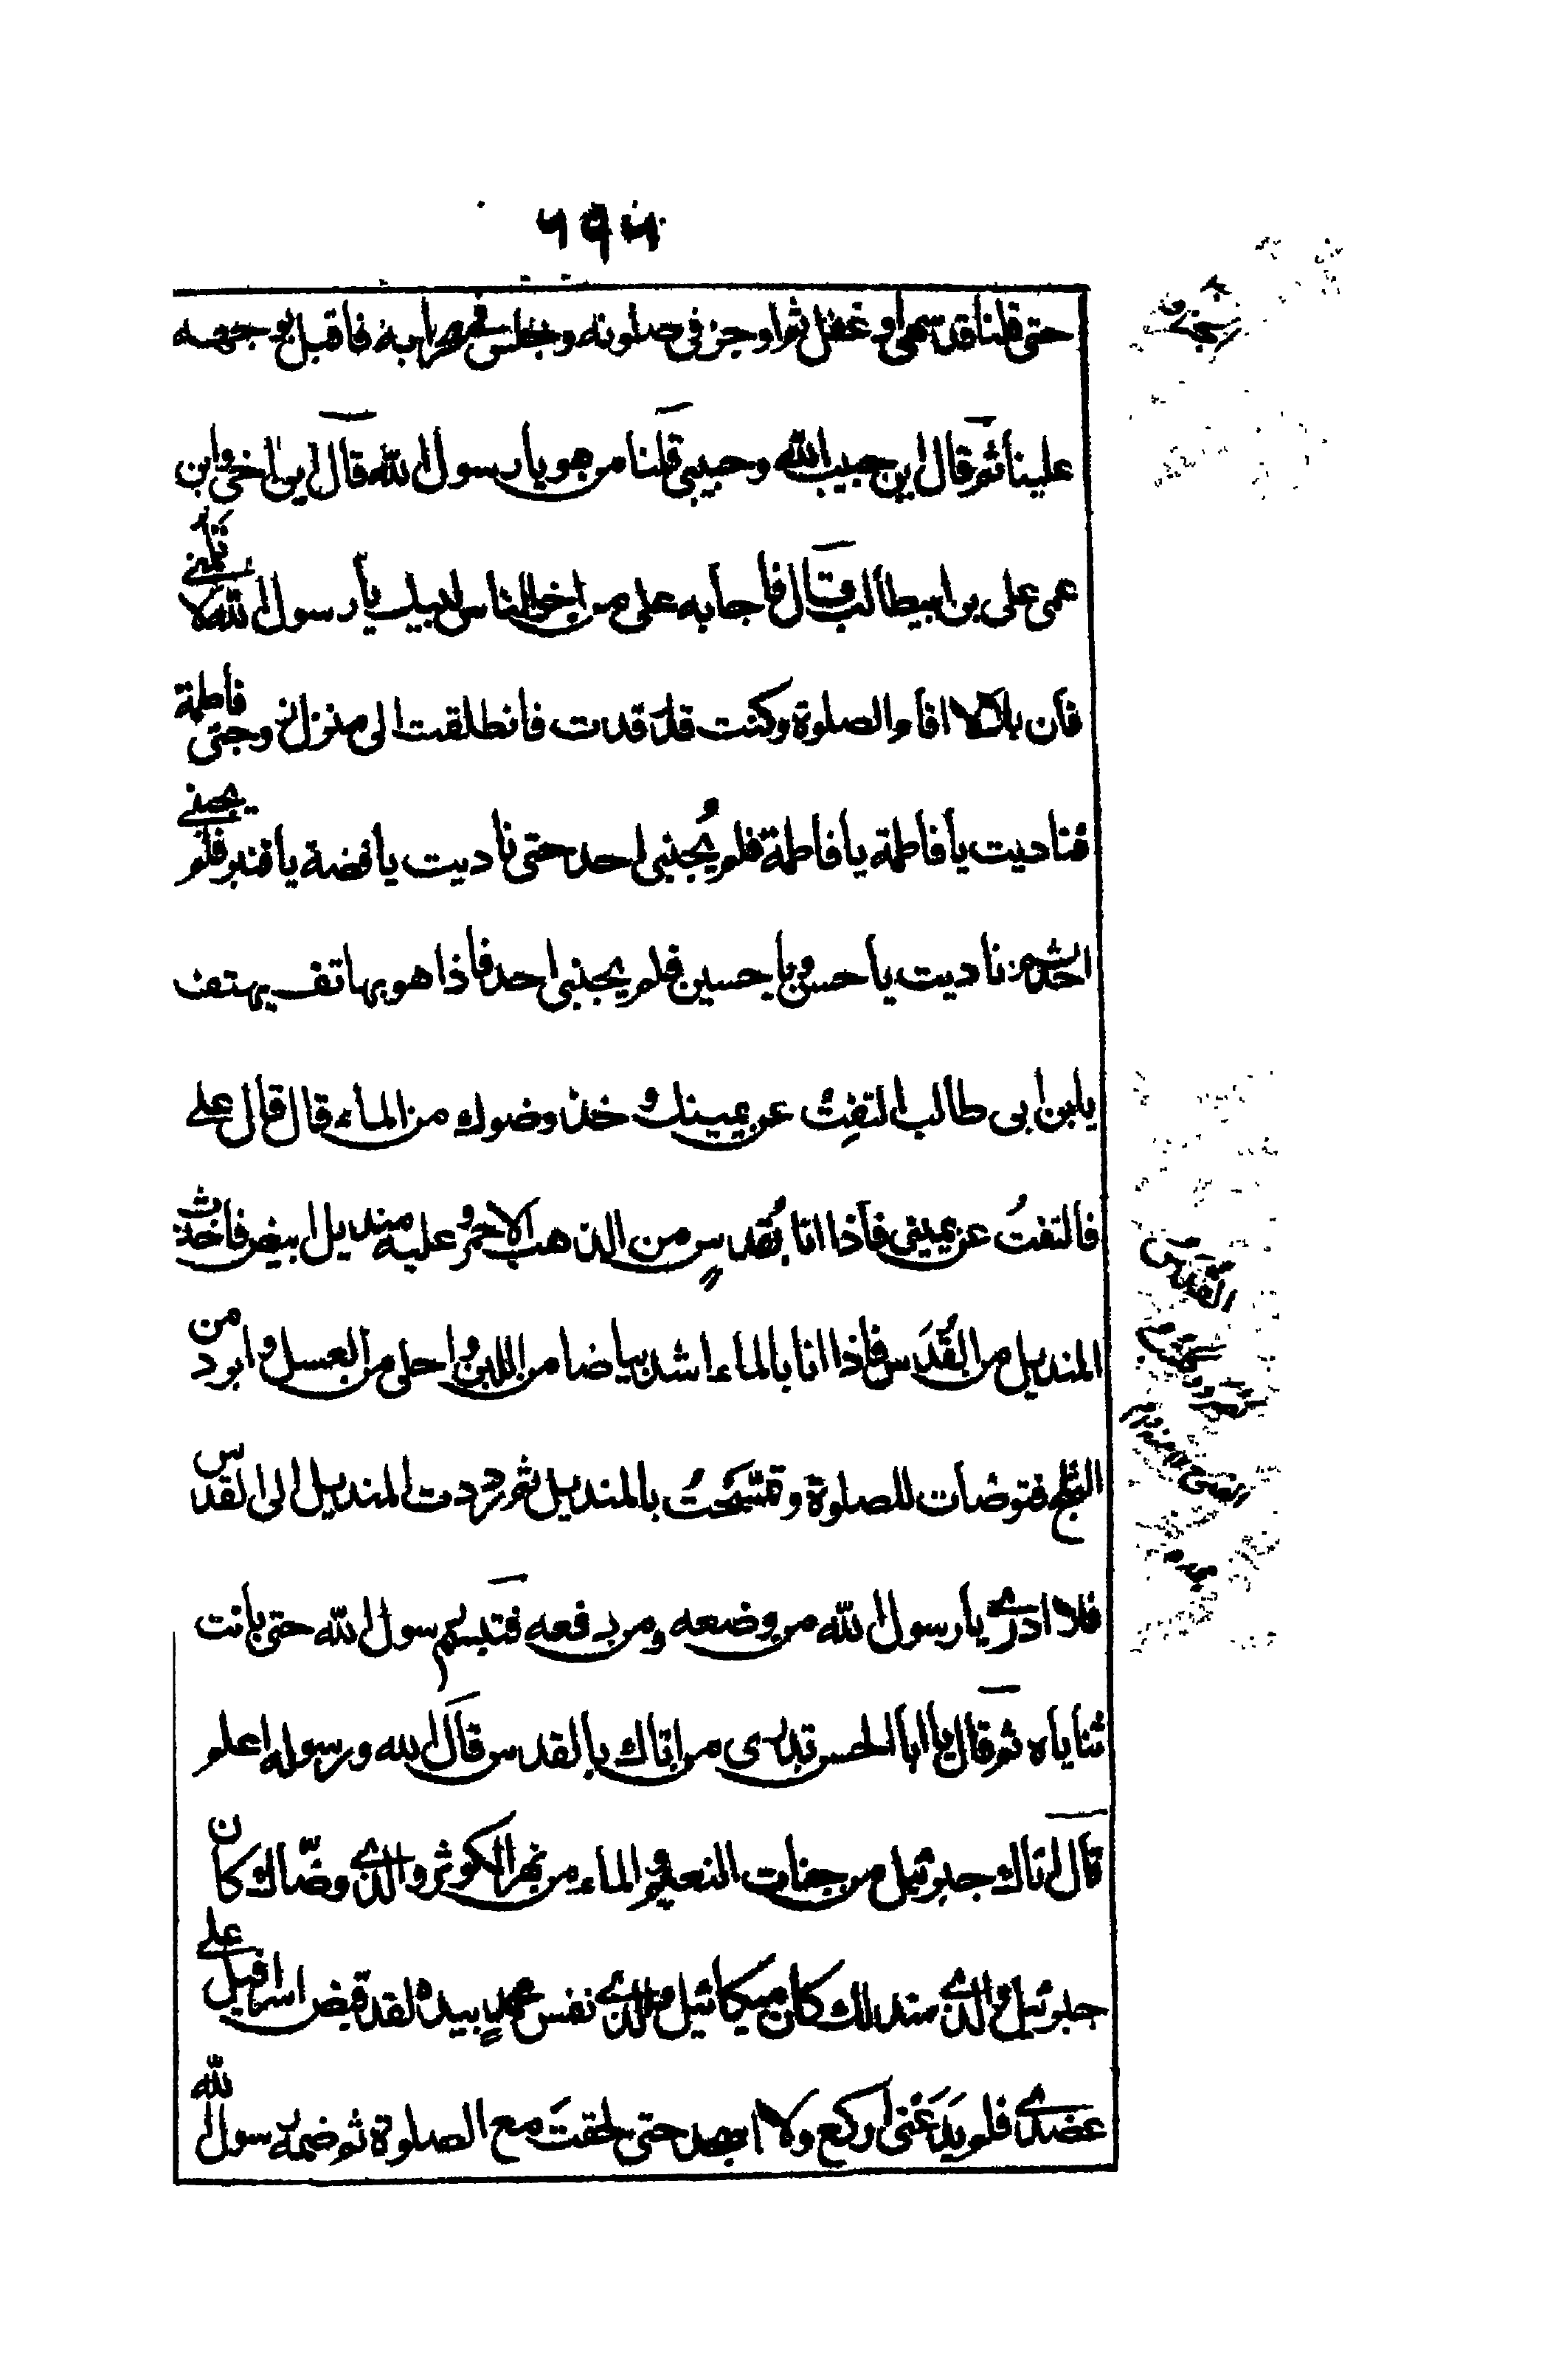 حتى قلنا قد سهى او غفل ثم اوجز فى صلوته وجلس فى محرابه فاقبل بوجهه
علينا ثم قال اين حبيب الله وحبيبى قلنا من هو يا رسول الله قال اين اخى وابن
عمى على بن ابيطالب قال فاجابه على من اخر الناس لبيك يا رسول الله لا تلمنى
فان بلالا اقام الصلوة وكنت قد قدت فانطلقت الى منزل زوجتى فاطمة
فناديت يا فاطمة يا فاطمة فلم يُجبنى احد حتى ناديت يا فضة يا قنبر فلم يجبنى
احد ثم ناديت يا حسن ويا حسين فلم يجبنى احد فاذا هو بهاتف يهتف
يابن ابى طالب التفِت عن يمينك و خذ وضوك من الماء قال قال على
فالتفتُ عن يمينى فاذا انا بقُدسٍ من الذهب الاحمر و عليه منديل ابيض فاخذت
المنديل من القُدَس فاذا انا بالماء اشد بياضا من اللبن و احلى من العسل و ابرد من
الثلج فتوضأت للصلوة وتمسّحتُ بالمنديل ثم رددت المنديل الى القدس
فلا ادرى يا رسول الله من وضعه ومن رفعه فتبسم رسول الله حتى بانت
ثناياه ثم قال يا ابا الحسن تدرى من اتاك بالقدس قال الله ورسوله اعلم
قال اتاك جبرئيل من جنات النعيم و الماء من نهر الكوثر والذى وضّاك كان
جبرئيل والذى مندلك كان ميكائيل والذى نفس محمدٍ بيده لقد قبض اسرافيل على
عضدى فلم يَدَعْنى اركع ولا اسجد حتى لحقتَ مع الصلوة ثم ضمه رسول الله
القدس